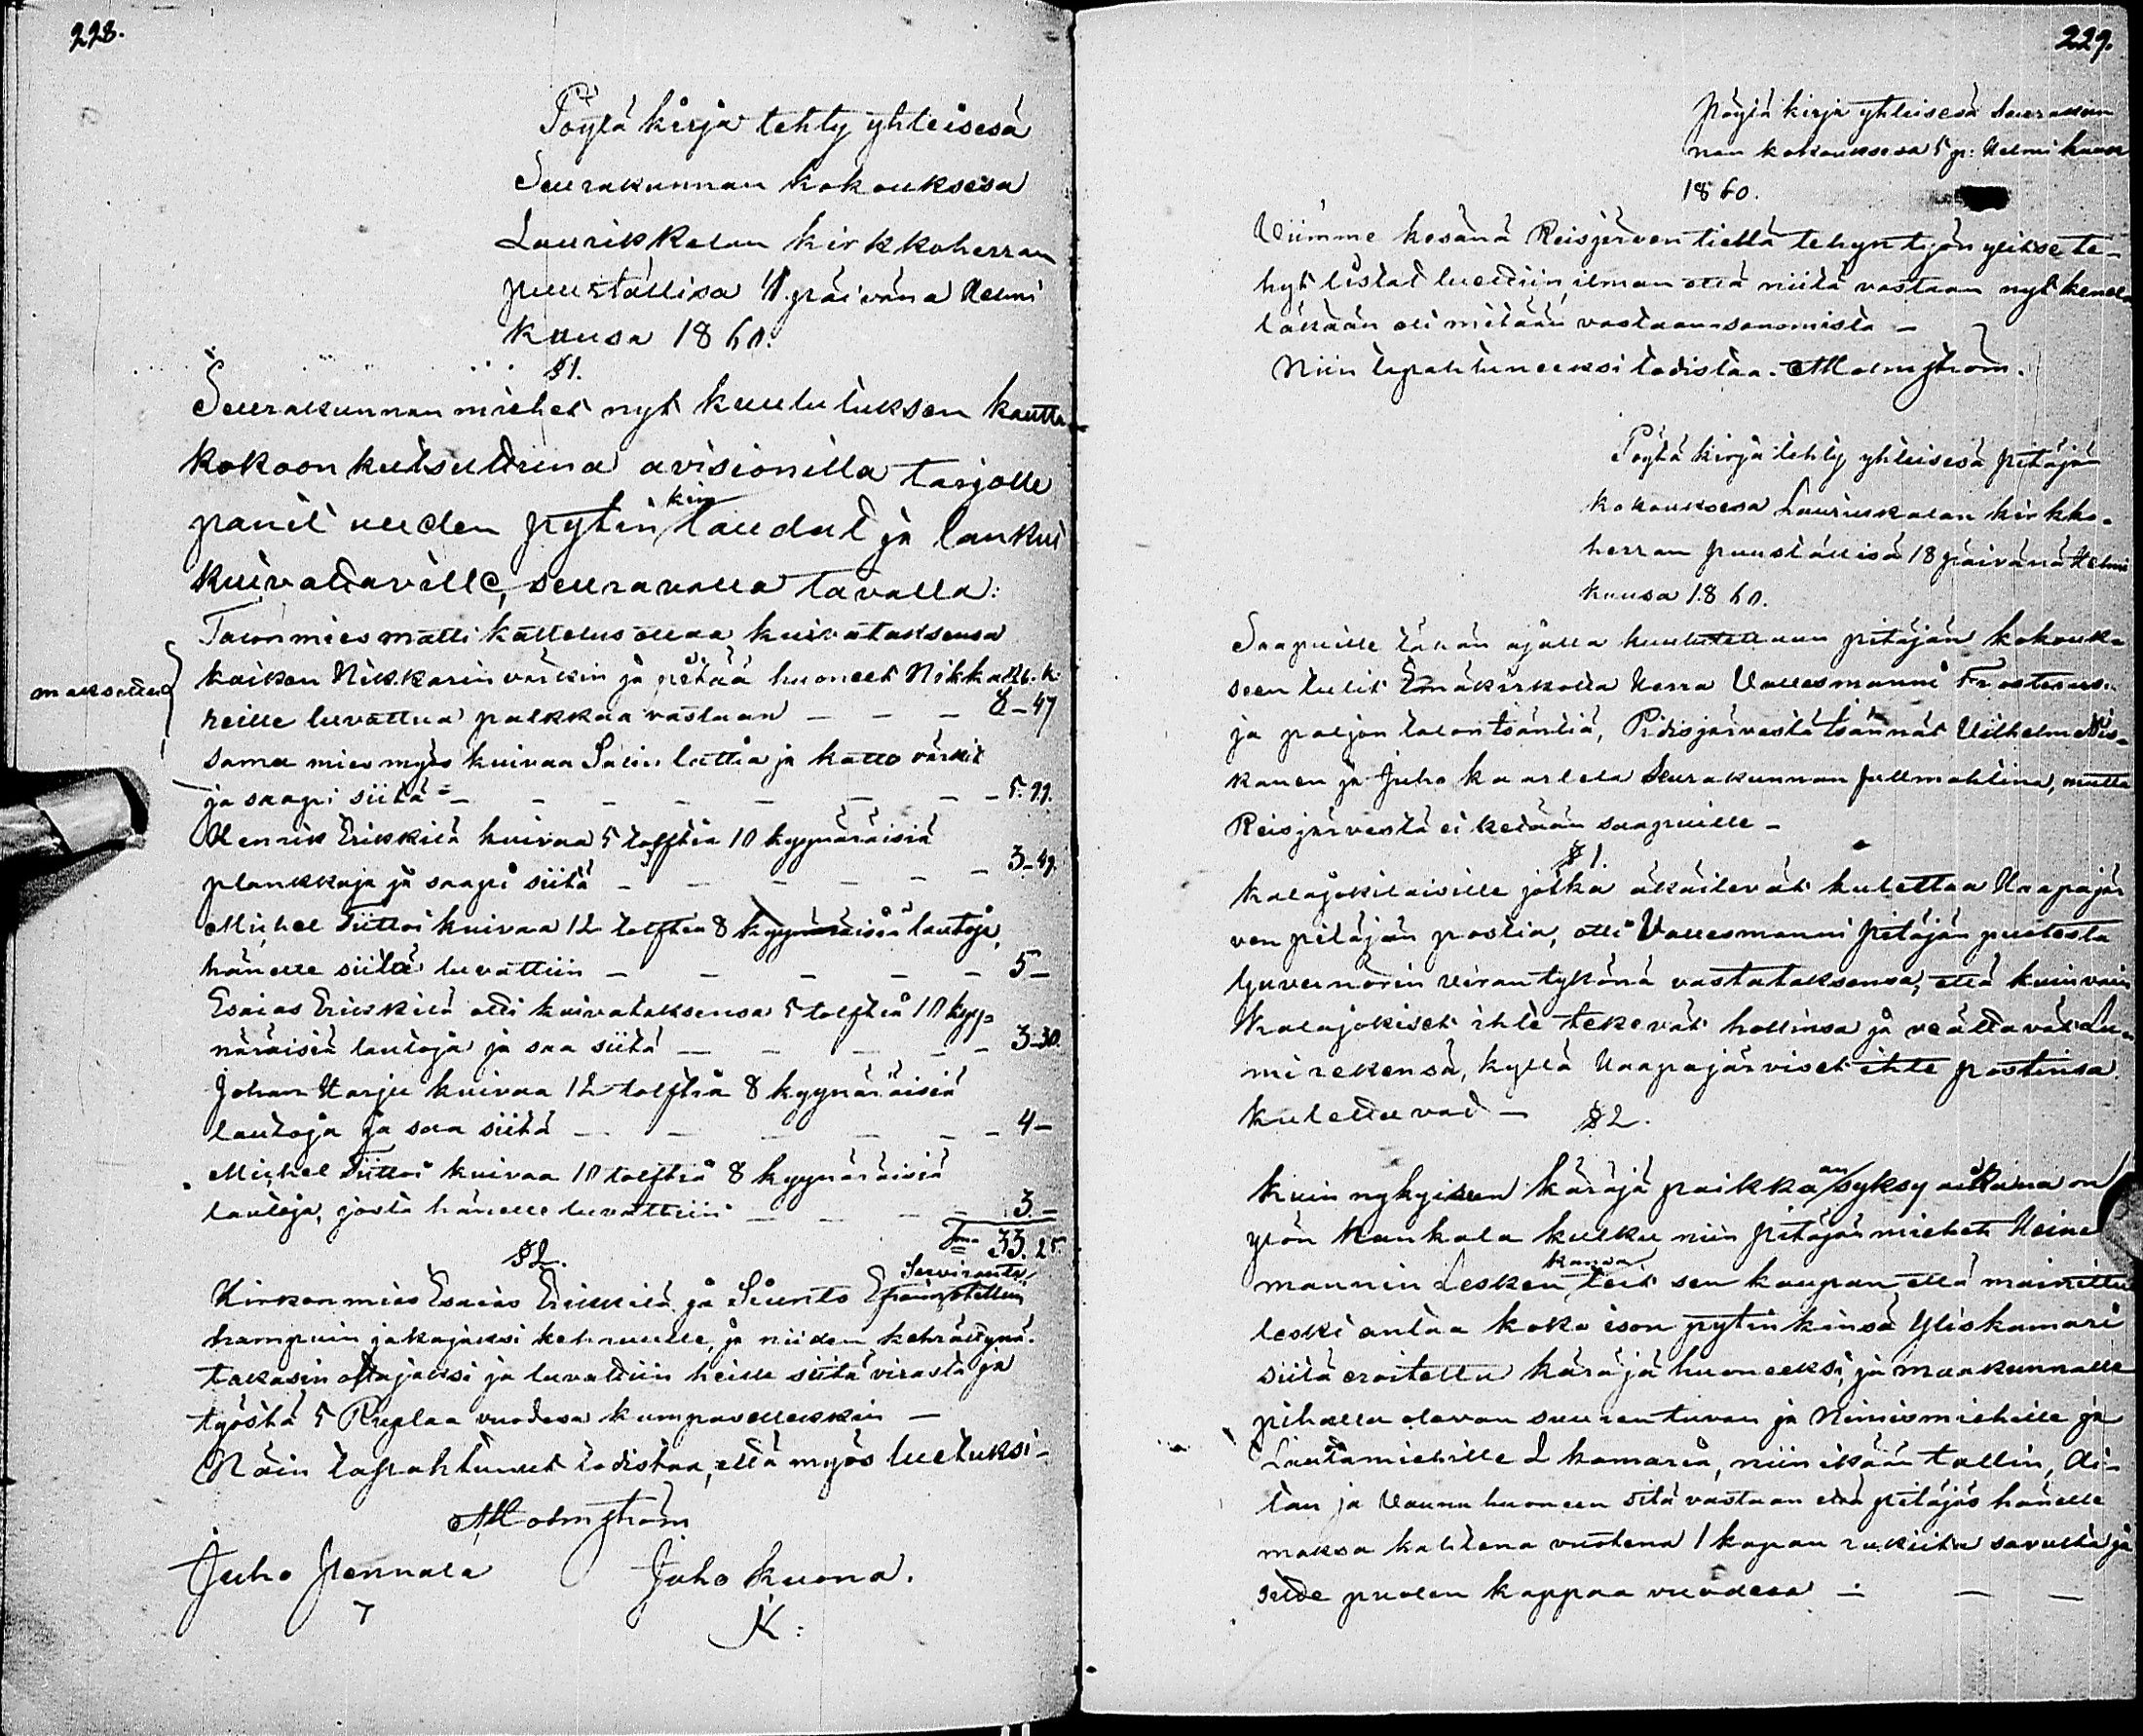 228.
Pöytä kirja tehty yhteisesä
Seurakunnan kokouksesa
Laurikkalan kirkkoherran
puuställisä päivänä Helmi
kuusa 1860.
§1.
Seurakunnan miehet nyt kuulutuksen kautta
kokoon kutsuttuina avisionilla tarjolle
panit uuden pytin kin laudat ja lankut
kuivattaville, seuravalla tavalla:
Talonmies Matti Kattelus ottaa kuivataksensa
kaiken Nikkarin värkin ja pitää huoneet Nikka Rb. k.
maksettu
reille luvattua palkkaa vastaan — — — 8-47
sama mies myös kuivaa Salin lattia ja katto värkit
ja saapi siitä — — — — — — — 5.99.
Henrik Erikkilä kuivaa 5 tolftia 10 kyynäräisiä
plankkuja ja saapi siitä — — — — — — 3-49.
Michel Tiittoi kuivaa 12 tolftia 8 kyynäräisiä lautoja,
hänelle siitä luvattiin — — — — — 5—
Esaias Erikkilä otti kuivataksensa 5 tolftia 10 kyy-
näräisiä lautoja ja saa siitä — — — — — 3-30.
Johan Harju kuivaa 12 tolftia 8 kyynäräisiä
lautoja ja saa siitä — — — — — — 4—
Michel Tiittoi kuivaa 10 tolftia 8 kyynäräisiä
lautoja, josta hänelle luvattiin — — — — 3.—
Sma 33.25.
§2.
Kirkonmies Esaias Erikkilä ja Siunto
hampuin jakajaksi kehruulle, ja niiden kehrättynä
takasin ottajaksi ja luvattiin heille siitä virasta ja
työstä 5 Ruplaa vuodesa kumpasellenkin —
Näin tapahtunut todistaa, että myös luetuksi —
A Holmström
Juho Pennala Juho Kuona.
K:
229.
Pöytä kirja yhteisesä Seurakun
nan kokouksesa 5 p: Helmi kuusa
1860.
Viimme kesänä Reisjärven tiellä tehyn työn ylitse te-
hyt listat luettiin, ilman että niitä vastaan nyt kenel
läkään oli mitään vastaansanomista —
Niin tapahtuneeksi todistaa. A Holmström.
Pöytä kirja tehty yhteisesä pitäjän
kokouksesa Laurikkalan kirkko-
herran puuställisä 18 päivänä Helmi
kuusa 1860.
Saapuille tähän ajalla kuulutettuun pitäjän kokouk-
seen tulit Emäkirkolta Herra Vallesmanni Frosterus
ja paljon talon isäntiä, Pidisjärvestä isännät Vilhelm Nis-
kanen ja Juho Kaarlela Seurakunnan fullmahtina, mutta
Reisjärvestä ei ketään saapuille —
§1.
Kalajokilaisille jotka äkäilevät kulettaa Haapajär
ven pitäjän postia, otti Vallesmanni pitäjän puolesta
Guvernörin Viran tykönä vastataksensa, että kuin vain
Kalajokiset ihte tekevät hollinsa ja veättävät Lu-
mi rekensä, kyllä Haapajärviset ihte postinsa
kulettavat — §2.
Kuin nykyisen käräjä paikkaan syksy aikana on
ylön hankala kulku niin pitäjän miehet Heine
mannin Lesken kansa teit sen kaupan, että mainittu
leski antaa koko ison pytinkinsä Yliskamari
siitä eroitettu käräjä huoneeksi, ja maakunnalle
pihalla olevan suuren tuvan ja Nimismiehille ja
Lautamiehille 2 kamaria, niin ikään tallin, Ai-
tan ja Vaunu huoneen sitä vastaan että pitäjäs hänelle
maksa kahtena vuotena 1 kapan rukiita savulta ja
puolen kappaa vuodesa — — —